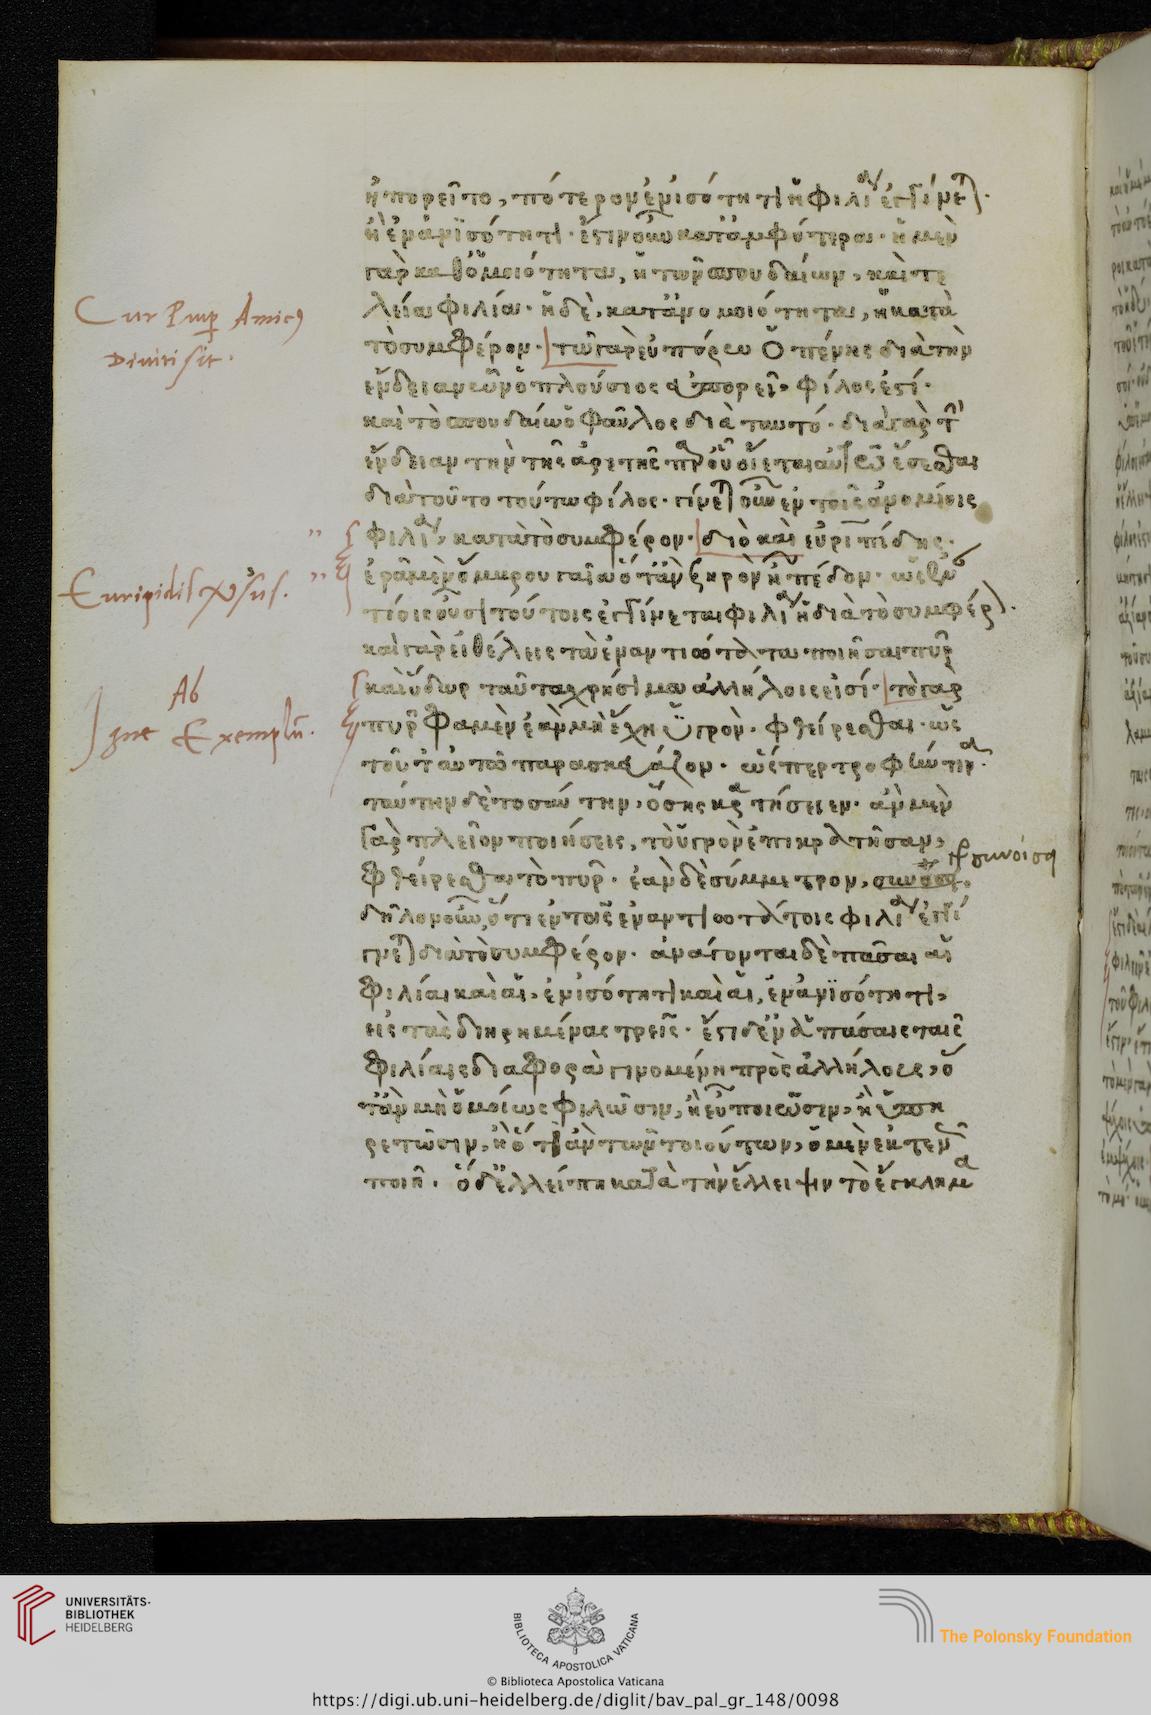 ἠπορεῖτο, πότερον ἐν ἰσότητι ἢ φιλία ἐγγίνεται.
ἢ ἐν ἀνϊσότητι· ἔστιν οὖν κατ' ἀμφότερα· ἡ μὲν
γὰρ καθ' ὁμοιότητα, ἡ τῶν σπουδαίων, καὶ τε
λεία φιλία· ἡ δὲ, κατ' ἀνομοιότητα, ἡ κατὰ
τὸ συμφέρον· τῶ γὰρ εὐπόρω ὁ πένης διὰ τὴν
ἔνδειαν ὧν ὁ πλούσιος εὐπορεῖ, φίλος ἐστί·
καὶ τῶ σπουδαίω ὁ φαῦλος διὰ ταυτό· διὰ γὰρ τὴν
ἔνδειαν τὴν τῆς ἀρετῆς παρ' οὗ οἴεται αὐτῶ ἔσεσθαι
διὰ τοῦτο τούτω φίλος· γίνεται οὖν ἐν τοῖς ἀνομοίοις
φιλία, κατὰ τὸ συμφέρον· διὸ καὶ εὐριπίδης·
ἐρᾶ μὲν ὄμβρου γαῖα ὅταν ξηρὸν ἦ πέδον· ὡς ἐν
τίοις οὖσι τούτοις ἐγγίνεται φιλία ἡ διὰ τὸ συμφέρον.
καὶ γὰρ εἰ θέλεις τὰ ἐναντιώτατα ποιῆσαι πῦρ
καὶ ὕδωρ ταῦτα χρήσιμα ἀλλήλοις εἰσί· τὸ γὰρ
πῦρ φαμὲν ἐὰν μὴ ἔχη ὑγρὸν· φθείρεσθαι· ὡς
τοῦτ' αὐτῶ παρασκευάζον· ὥσπερ τροφήν τινα·
ταύτην δὲ τοσαύτην, ὅσης κρατήσειεν· ἂν μὲν
γὰρ πλεῖον ποιήσεις, τὸ ὑγρὸν ἐπικρατῆσαν,
φθείρεσθαι τὸ πῦρ· ἐὰν δὲ σύμμετρον, συνοίσει.
συνοίσει
δῆλον οὖν, ὅτι ἐν τοῖς ἐναντιωτάτοις φιλία ἐγγί
γνεται διὰ τὸ συμφέρον· ἀνάγονται δὲ πᾶσαι αἱ
φιλίαι καὶ αἱ, ἐν ἰσότητι καὶ αἱ, ἐν ἀνϊσότητι,
εἰς τὰς διηρημένας τρεῖς· ἔστι δ' ἐν ἁπάσαις ταῖς
φιλίαις διαφορὰ γινομένη πρὸς ἀλλήλους, ὅ
ταν μὴ ὁμοίως φιλῶσιν, ἢ εὐποιῶσιν, ἢ ὑπη
ρετῶσιν, ἢ ὅ τι ἂν τῶν τοιούτων, ὁ μὲν ἐκτενῶς
ποιῆ· ὁ δ' ἐλλείπη κατὰ τὴν ἔλλειψιν τὸ ἔγκλημα
Cur Paup Amicus
Diviti sit.
Euripidis versus.
Ab
Igne Exemplum.
UNIVERSITÄTS-
BIBLIOTHEK
HEIDELBERG
BIBLIOTECA APOSTOLICA VATICANA
The Polonsky Foundation
© Biblioteca Apostolica Vaticana
https://digi.ub.uni-heidelberg.de/diglit/bav_pal_gr_148/0098